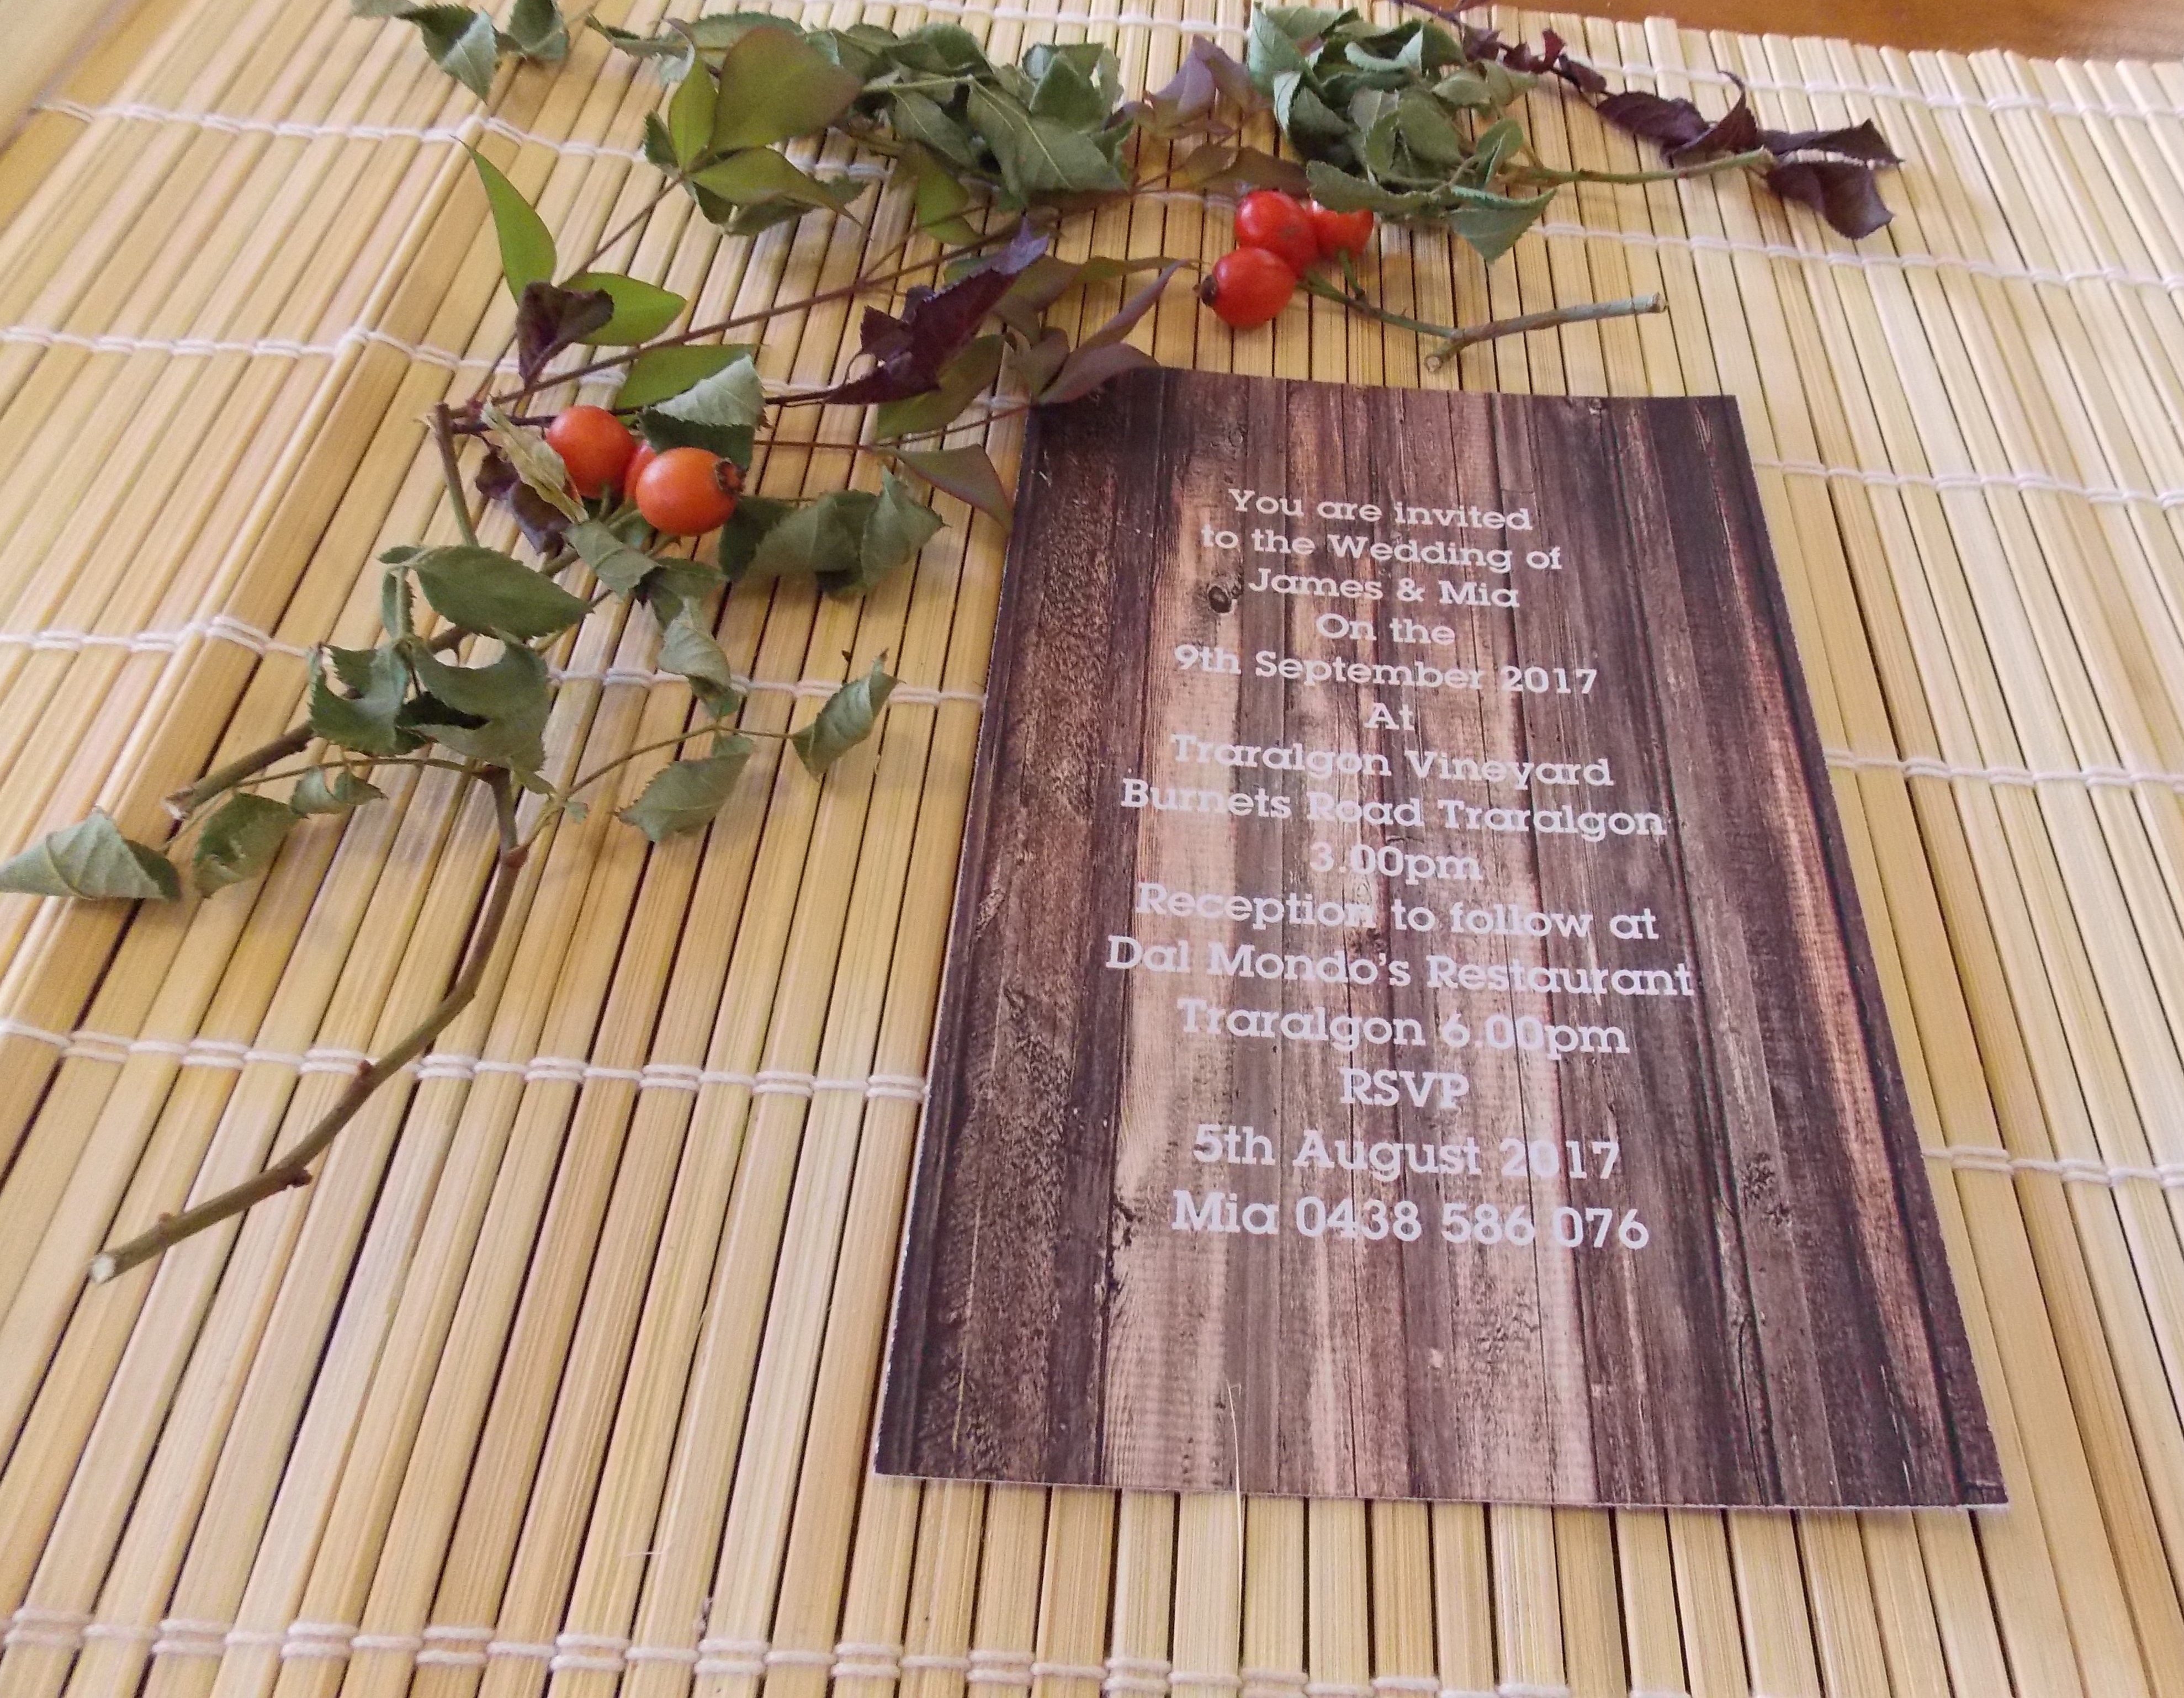 You are invited
to the Wedding of
James & Mia
On the
9th September 2017
At
Traralgon Vineyard
Burnets Road Traralgon
3.00pm
Reception to follow at
Dal Mondo's Restaurant
Traralgon 6.00pm
RSVP
5th August 2017
Mia 0438 586 076